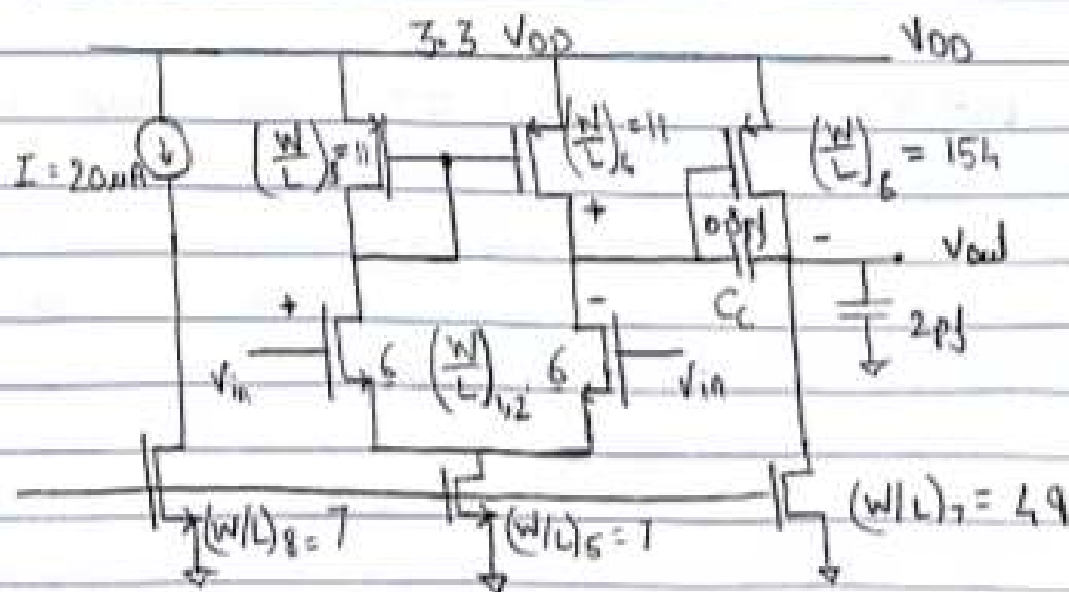 3.3 VDD
VDD
I = 20uA
(W/L)3 = 11
(W/L)4 = 11
(W/L)6 = 154
+
0.8pf
-
Vout
Cc
2pf
+
-
Vin
6 (W/L)1,2 6
Vin
(W/L)8 = 7
(W/L)5 = 7
(W/L)7 = 49